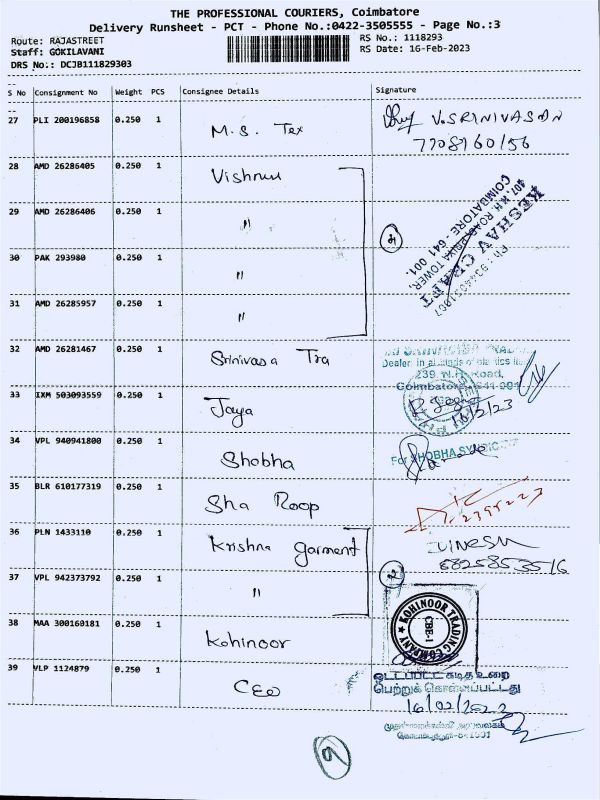 THE PROFESSIONAL COURIERS, Coimbatore
Delivery Runsheet - PCT - Phone No.:0422-3505555 - Page No.:3
Route: RAJASTREET
RS No.: 1118293
Staff: GOKILAVANI
RS Date: 16-Feb-2023
DRS No.: DCJB111829303
S No Consignment No Weight PCS Consignee Details Signature
27 PLI 200196858 0.250 1 M.S. Tex V.SRINIVASAN
7708960156
28 AMD 26286405 0.250 1 Vishnu
29 AMD 26286406 0.250 1 "
KESHAV CRAFT
407, N.H. ROAD, TOWER,
COIMBATORE - 641 001.
30 PAK 293980 0.250 1 "
31 AMD 26285957 0.250 1 "
32 AMD 26281467 0.250 1 Srinivasa Tra
Dealer in all kinds of plastics
239, N.H. Road,
Coimbatore - 641 001
33 IXM 503093559 0.250 1 Jaya
16/2/23
34 VPL 940941800 0.250 1 Shobha
For SHOBHA
35 BLR 610177319 0.250 1 Sha Roop
36 PLN 1433110 0.250 1 Krishna garment
DINESH
37 VPL 942373792 0.250 1 "
38 MAA 300160181 0.250 1 Kohinoor
KOHINOOR TRADING COMPANY
CBE-1
39 VLP 1124879 0.250 1 CEO
ஒட்டப்பட்ட கடித உறை
பெற்றுக் கொள்ளப்பட்டது
16/02/2023